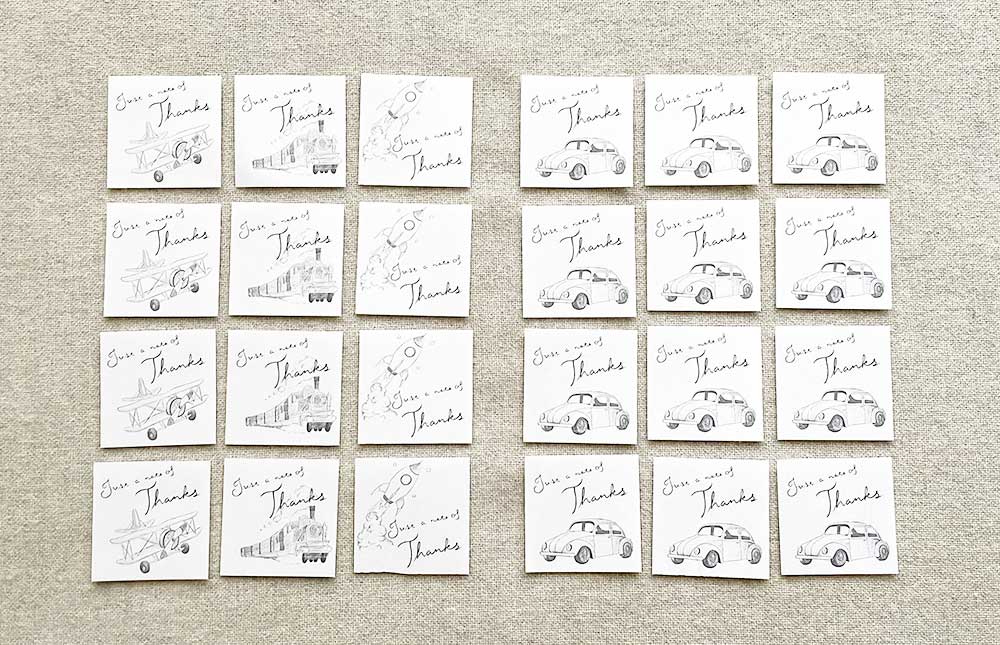 Just a note of
Thanks
Just a note of
Thanks
Just a note of
Thanks
Just a note of
Thanks
Just a note of
Thanks
Just a note of
Thanks
Just a note of
Thanks
Just a note of
Thanks
Just a note of
Thanks
Just a note of
Thanks
Just a note of
Thanks
Just a note of
Thanks
Just a note of
Thanks
Just a note of
Thanks
Just a note of
Thanks
Just a note of
Thanks
Just a note of
Thanks
Just a note of
Thanks
Just a note of
Thanks
Just a note of
Thanks
Just a note of
Thanks
Just a note of
Thanks
Just a note of
Thanks
Just a note of
Thanks